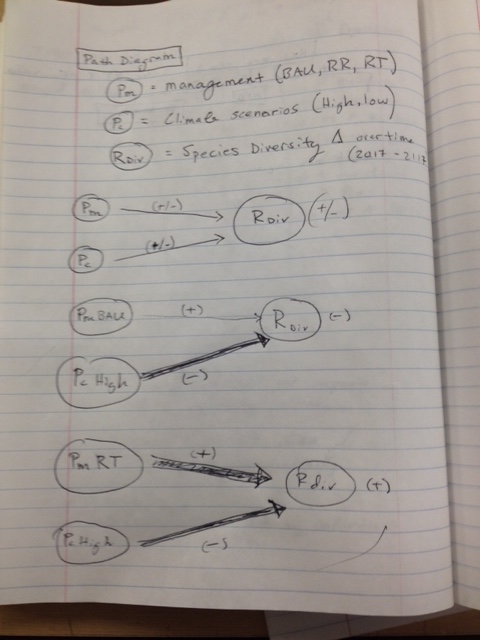 Path Diagram
Pm = management (BAU, RR, RT)
Pc = Climate scenarios (High, low)
RDiv = Species Diversity Δ over time
(2017 - 2117
Pm (+/-) RDiv (+/-)
Pc (+/-)
Pm BAU (+) RDiv (-)
Pc High (-)
Pm RT (+) Rdiv (+)
Pc High (-)